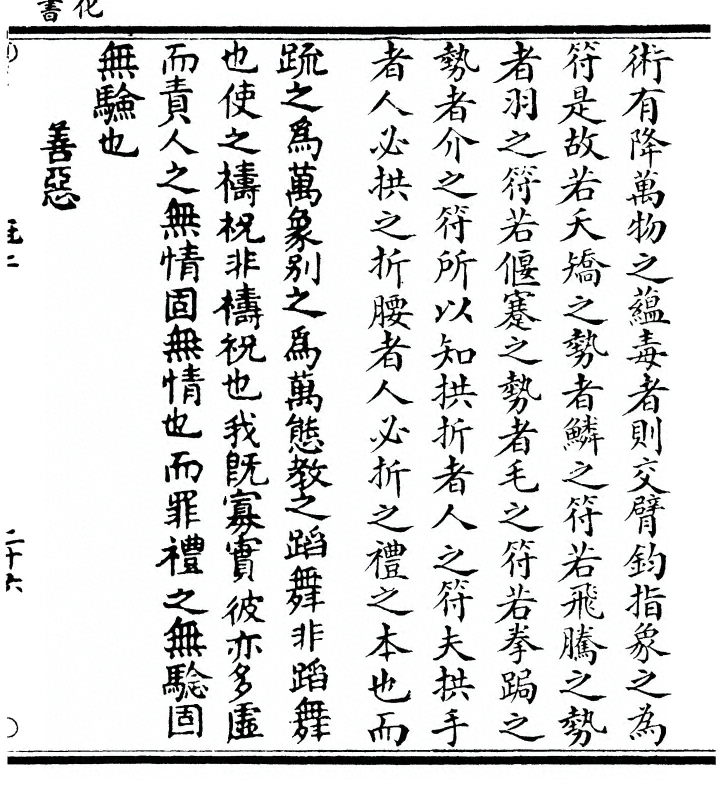 化書
術有降萬物之蘊毒者則交臂鈎指象之為
符是故若夭矯之勢者鱗之符若飛騰之勢
者羽之符若偃蹇之勢者毛之符若拳跼之
勢者介之符所以知拱折者人之符夫拱手
者人必拱之折腰者人必折之禮之本也而
疏之爲萬象别之爲萬態教之蹈舞非蹈舞
也使之禱祝非禱祝也我旣寡實彼亦多虛
而責人之無情固無情也而罪禮之無驗固
無驗也
善惡
二十六